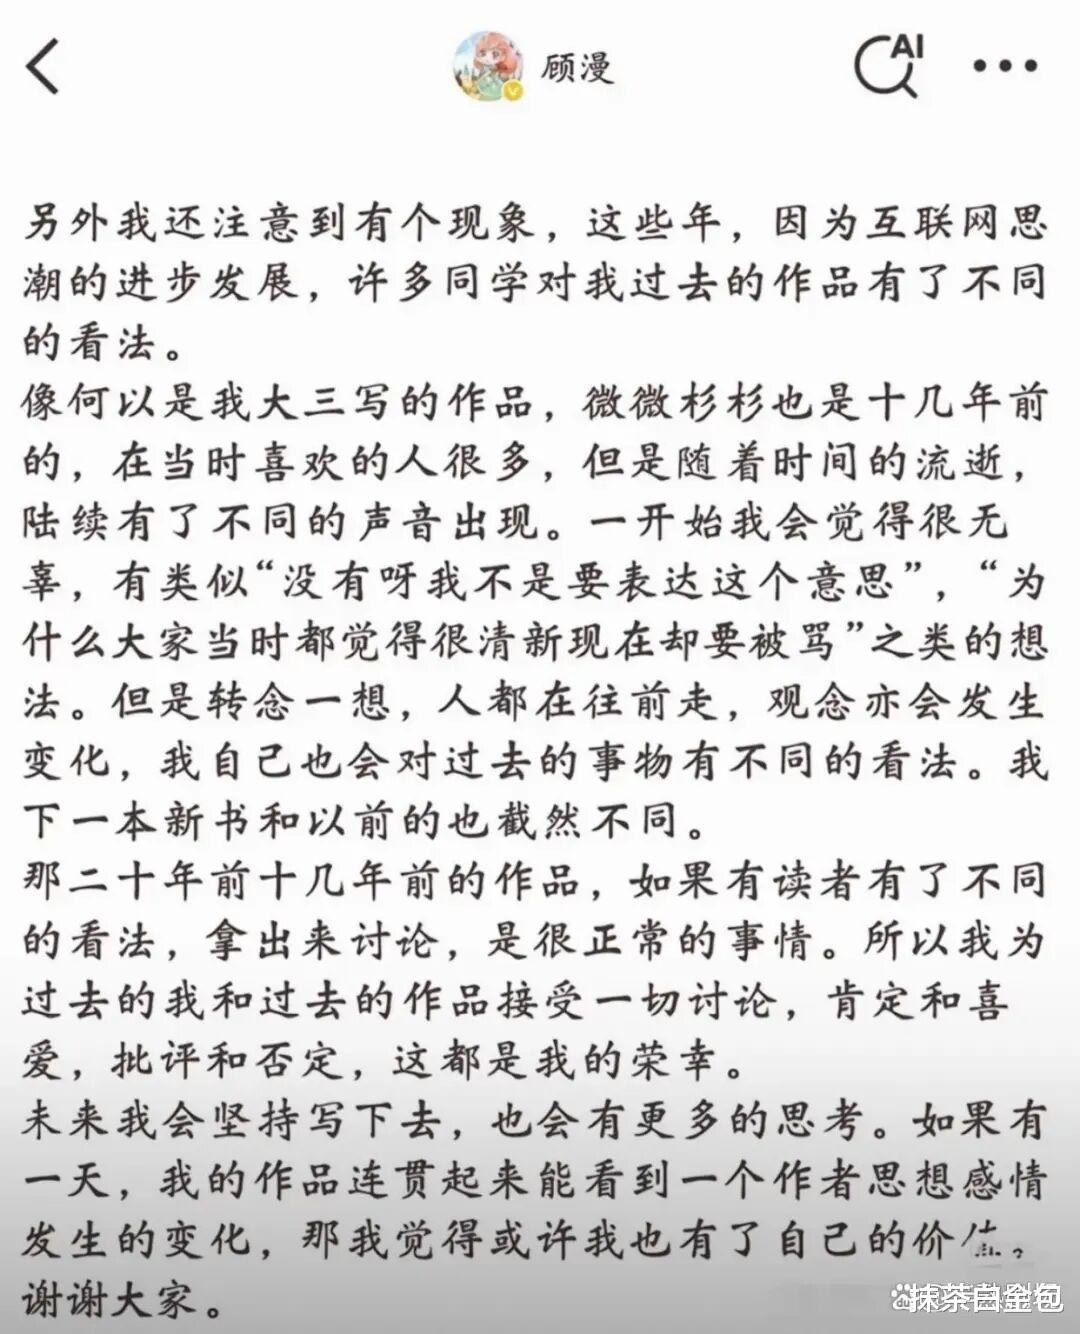 顾漫
AI
另外我还注意到有个现象，这些年，因为互联网思
潮的进步发展，许多同学对我过去的作品有了不同
的看法。
像何以是我大三写的作品，微微杉杉也是十几年前
的，在当时喜欢的人很多，但是随着时间的流逝，
陆续有了不同的声音出现。一开始我会觉得很无
辜，有类似“没有呀我不是要表达这个意思”，“为
什么大家当时都觉得很清新现在却要被骂”之类的想
法。但是转念一想，人都在往前走，观念亦会发生
变化，我自己也会对过去的事物有不同的看法。我
下一本新书和以前的也截然不同。
那二十年前十几年前的作品，如果有读者有了不同
的看法，拿出来讨论，是很正常的事情。所以我为
过去的我和过去的作品接受一切讨论，肯定和喜
爱，批评和否定，这都是我的荣幸。
未来我会坚持写下去，也会有更多的思考。如果有
一天，我的作品连贯起来能看到一个作者思想感情
发生的变化，那我觉得或许我也有了自己的价
谢谢大家。
抹茶白金包